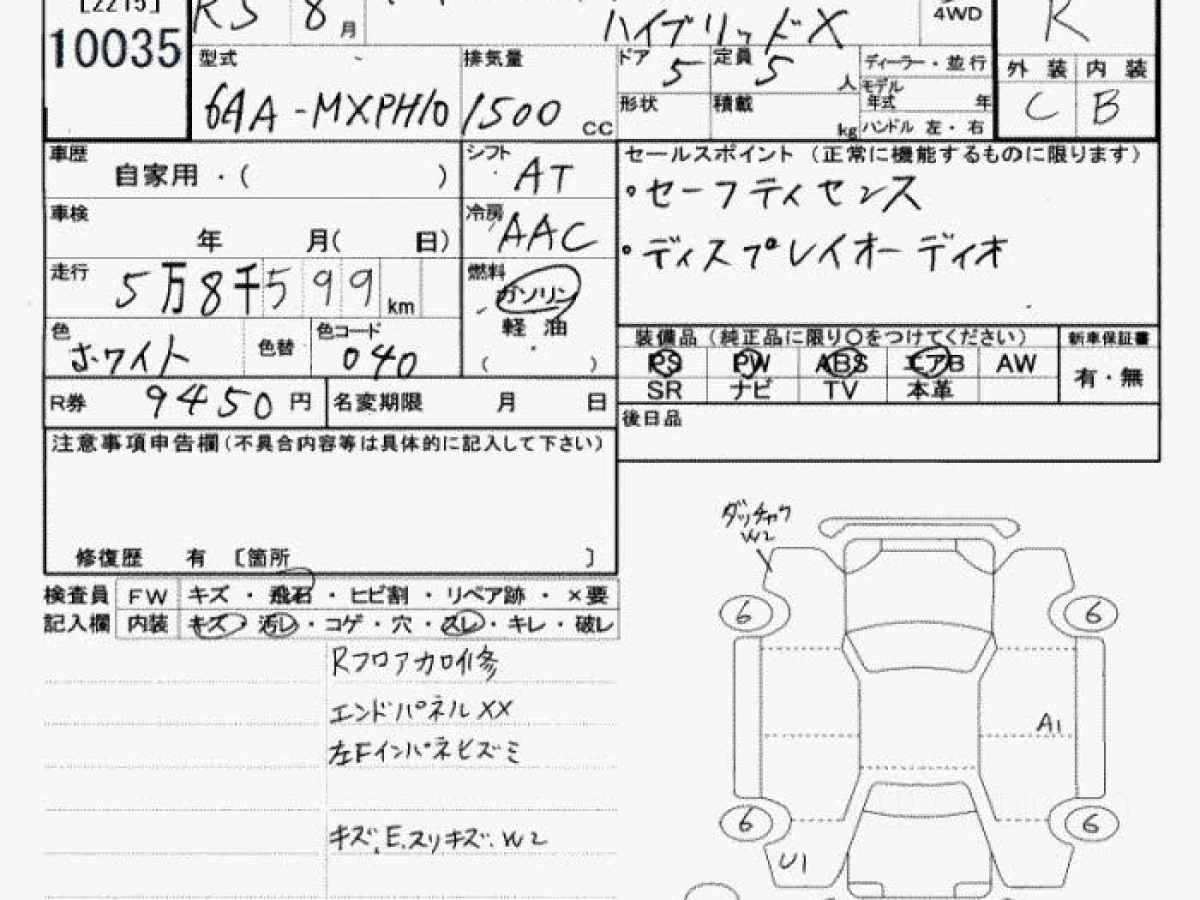 [2215]
10035
R5 8月
ハイブリッドX
4WD
R
型式
6AA-MXPH10
排気量
1500 CC
ドア 5
定員 5 人
形状
積載 kg
ディーラー・並行
モデル年式 年
ハンドル 左・右
外装 内装
C B
車歴
自家用・( )
シフト
AT
セールスポイント (正常に機能するものに限ります)
・セーフティセンス
・ディスプレイオーディオ
車検
年 月( 日)
冷房
AAC
走行
5万8千599km
燃料
ガソリン
軽油
( )
色
ホワイト
色替
色コード
040
装備品(純正品に限り○をつけてください)
新車保証書
PS PW ABS エアB AW
有・無
SR ナビ TV 本革
R券 9450円
名変期限 月 日
後日品
注意事項申告欄(不具合内容等は具体的に記入して下さい)
修復歴 有 〔箇所 〕
検査員 FW キズ・飛石・ヒビ割・リペア跡・×要
記入欄 内装 キズ・汚レ・コゲ・穴・スレ・キレ・破レ
Rフロアカロイ修
エンドパネルXX
左FインパネビズミI
キズ.E.スリキズ.W2
ダッチャク
W2
6 6
A1
6 6
U1